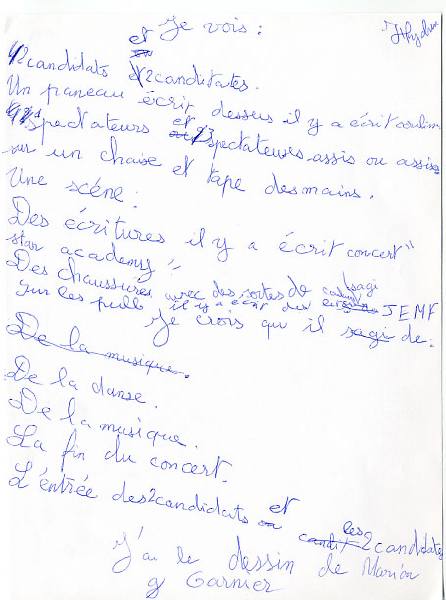 Je vois :
2 candidats et 2 candidates.
Un paneau écrit dessus il y a écrit
spectateurs et 13 spectateures assis ou assises
sur un chaise et tape des mains.
Une scéne :
Des écritures il y a écrit concert"
star academy"
Des chaussures avec des sortes de
sur les pulls il y a écrit des JEMF
Je crois qu il sagi de :
De la musique.
De la danse.
De la musique.
La fin du concert.
L'entrée des 2 candidats et les 2 candidates
J'ai le dessin de Marion
Garnier